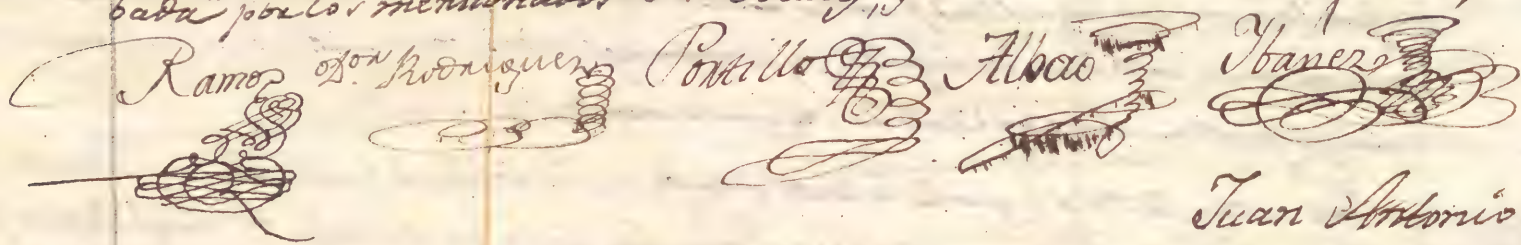 bada por los mencionados
Ramos Dor. Rodriguez Portillo Albao Ybañez
Juan Antonio